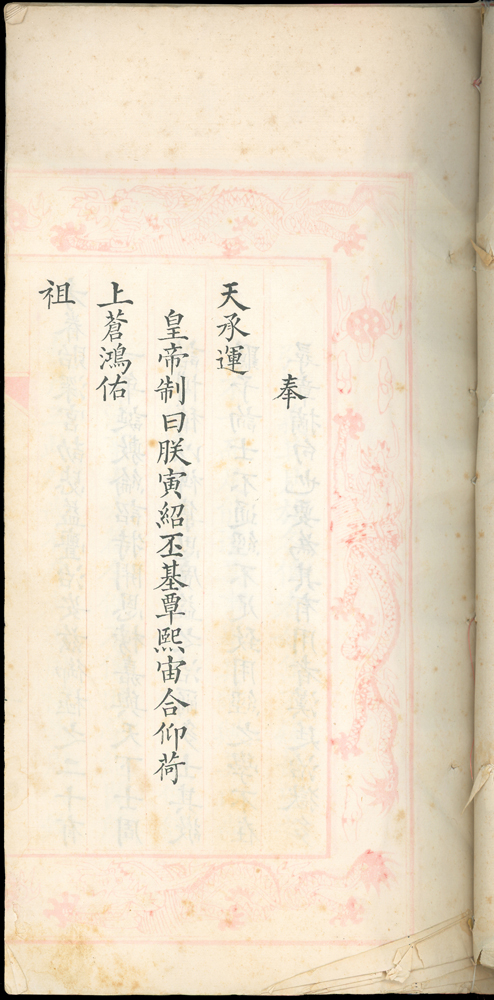 奉
天承運
皇帝制曰朕寅紹丕基覃熙宙合仰荷
上蒼鴻佑
祖